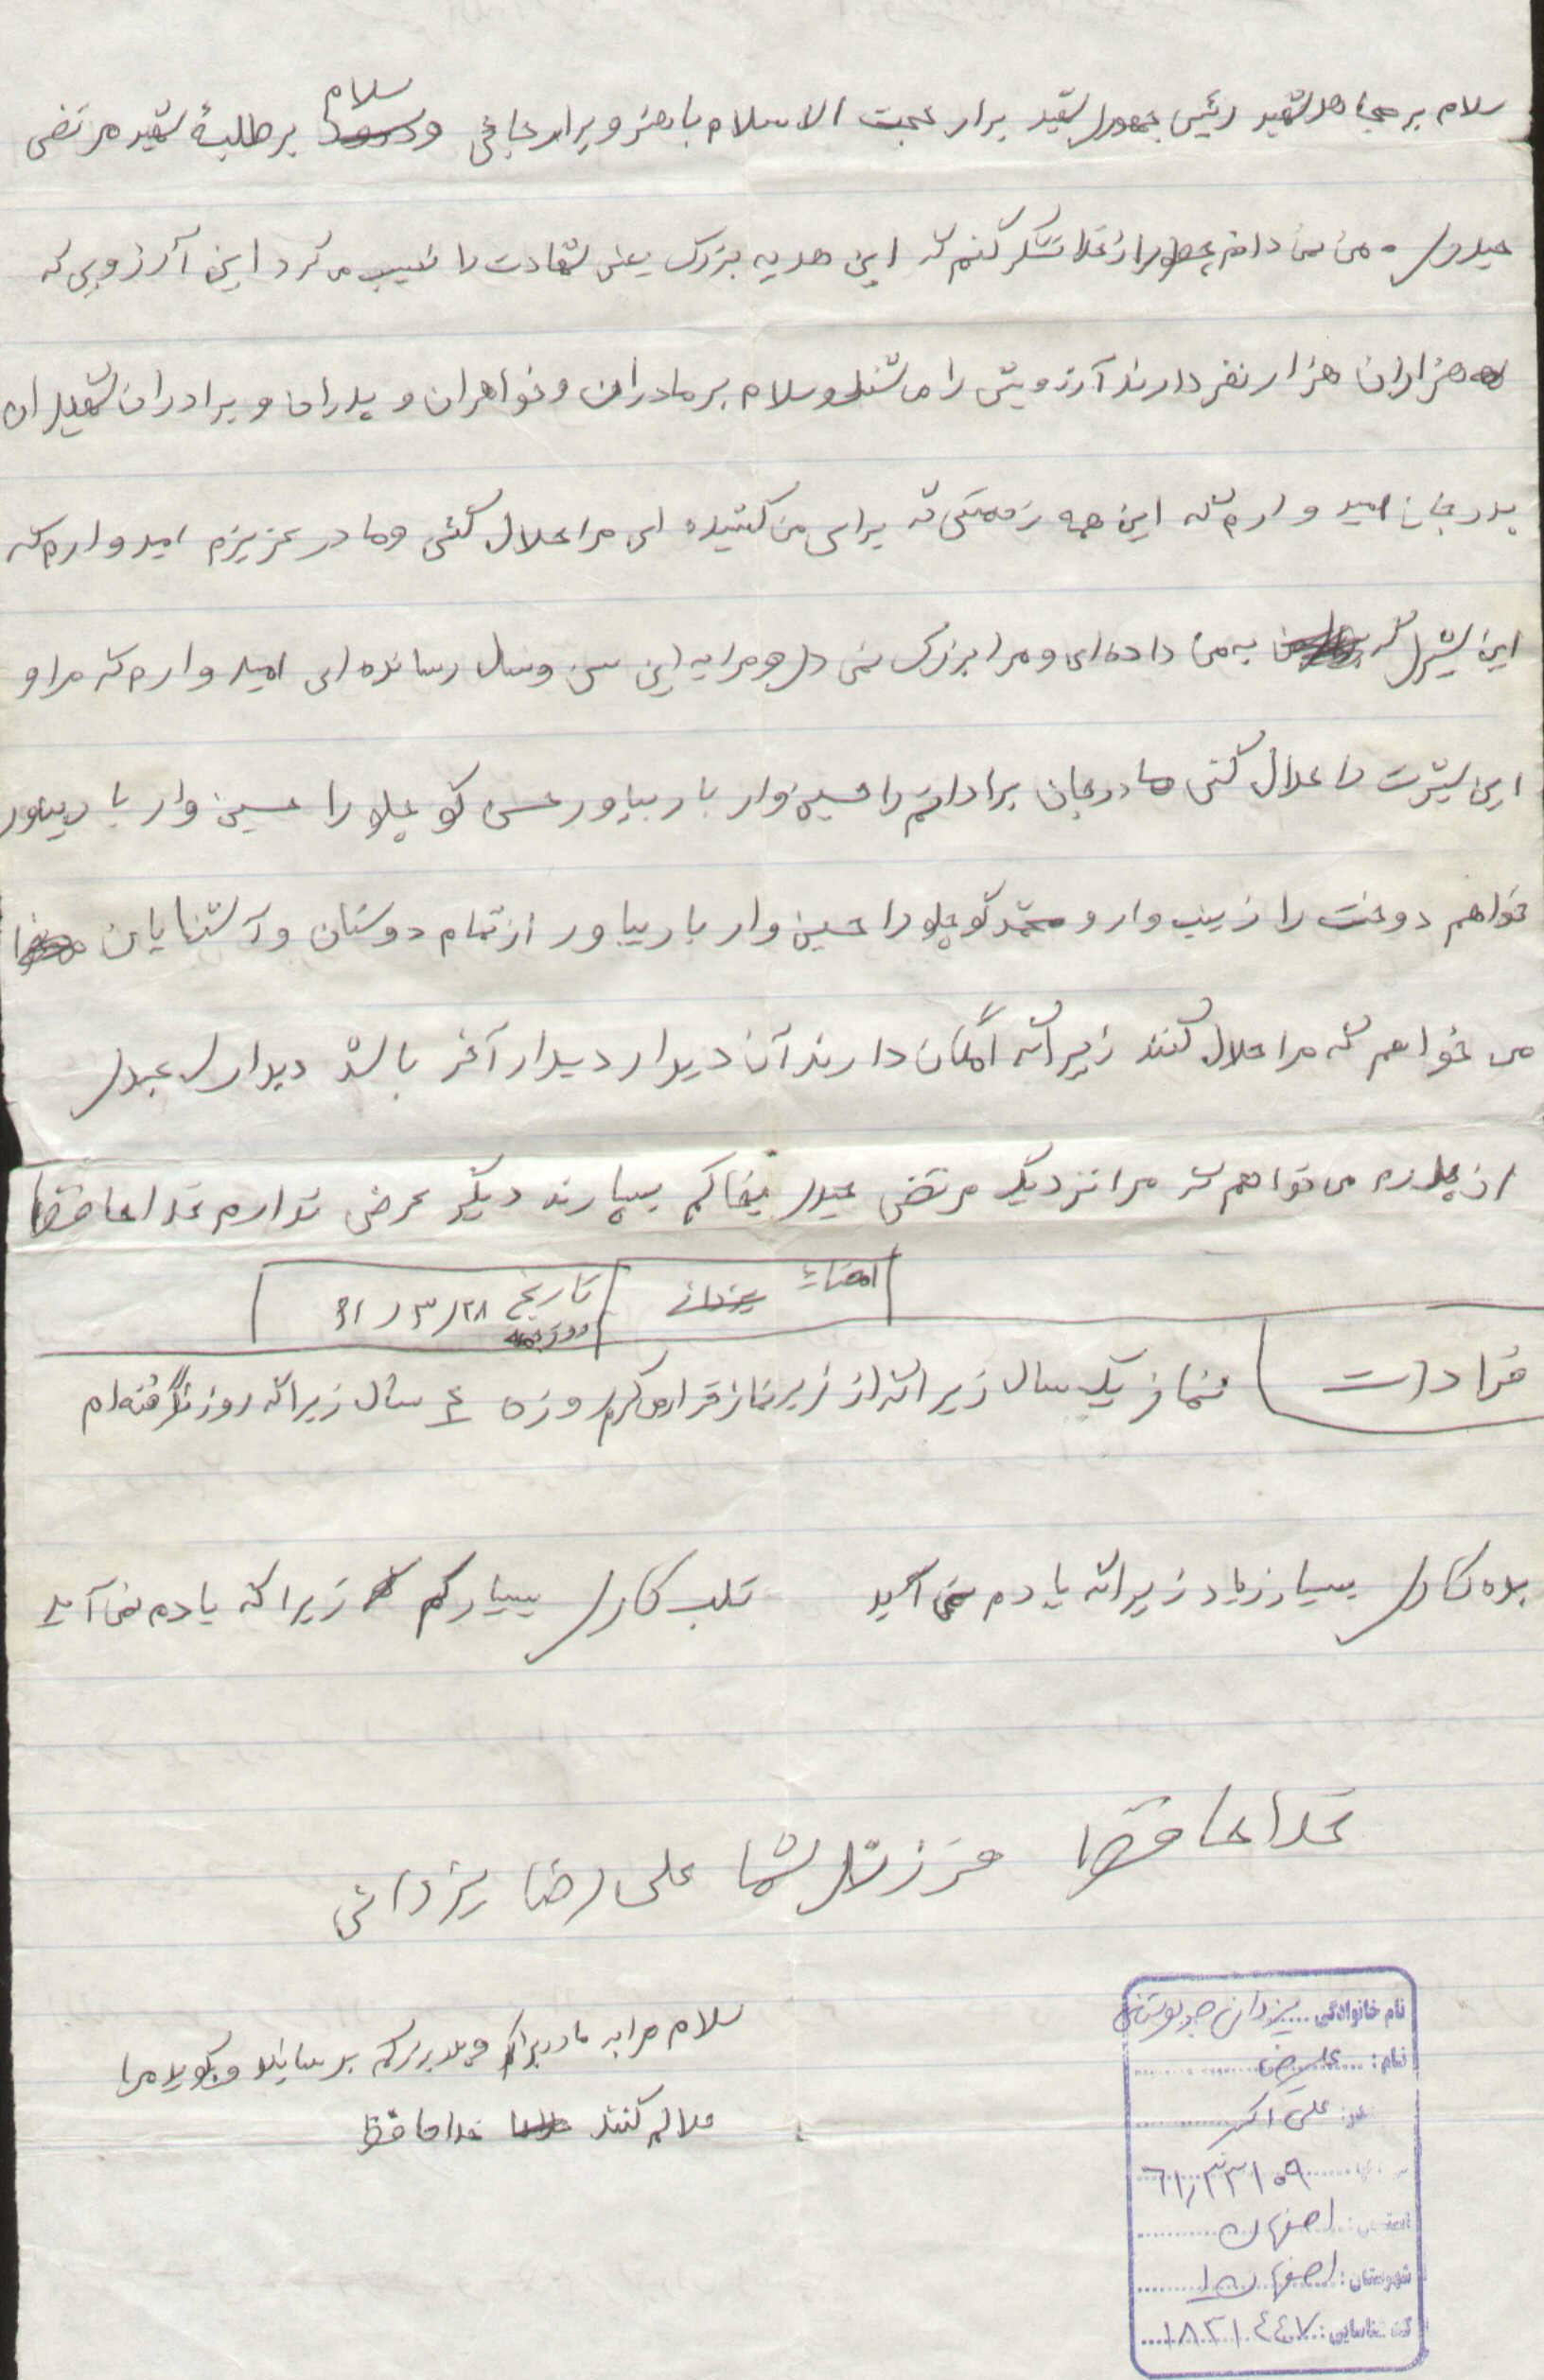 سلام بر مجاهد شهید رئیس جمهور شهید برادر حجت الاسلام باهنر و برادر رجائی و سلام بر طلبهٔ شهید مرتضی
حیدری من نمی دانم چطور از خدا تشکر کنم که این هدیه بزرگ یعنی شهادت را نصیب می کرد این آرزویی که
هزاران هزار نفر دارند آرزویش را می کشند و سلام بر مادران و خواهران و پدران و برادران شهیدان
پدر جان امید وارم که این همه زحمتی که برای من کشیده ای مرا حلال کنی و مادر عزیزم امید وارم که
این شیری که به من داده ای و مرا بزرگ نمودی و مرا به این سن و سال رسانده ای امید وارم که مرا و
این شیرت را حلال کنی مادر جان برادرانم را حسین وار بار بیاور حسن کوچلو را حسین وار بار بیاور
خواهم دوخت را زینب وار و محمد کوچلو را حسین وار بار بیاور از تمام دوستان و آشنایان
می خواهم که مرا حلال کنند زیراکه امکان دارند آن دیدار دیدار آخر باشد دیدار
از پدرم می خواهم که مرا نزدیک مرتضی حیدری بخاکم بسپارند دیگر عرضی ندارم خدا حافظ
امضاء یزدانی تاریخ ۶۱/۳/۲۸
نماز یک سال زیراکه از زیر نماز فرار می کردم روزه ۴ سال زیراکه روزه نگرفته ام
بده کاری بسیار زیاد زیراکه یادم نمی آید تلب کاری بسیار کم زیراکه یادم نمی آید
خدا حافظ فرزند شما علی رضا یزدانی
سلام مرا به مادر بزرگم و پدر بزرگم برسانید و بگویید مرا
حلالم کنند خدا حافظ
نام خانوادگی: یزدانی
نام: علیرضا
علی اکبر
اصفهان
شهرستان: اصفهان
کد شناسایی: ۱۸۲۱۰۴۴۷